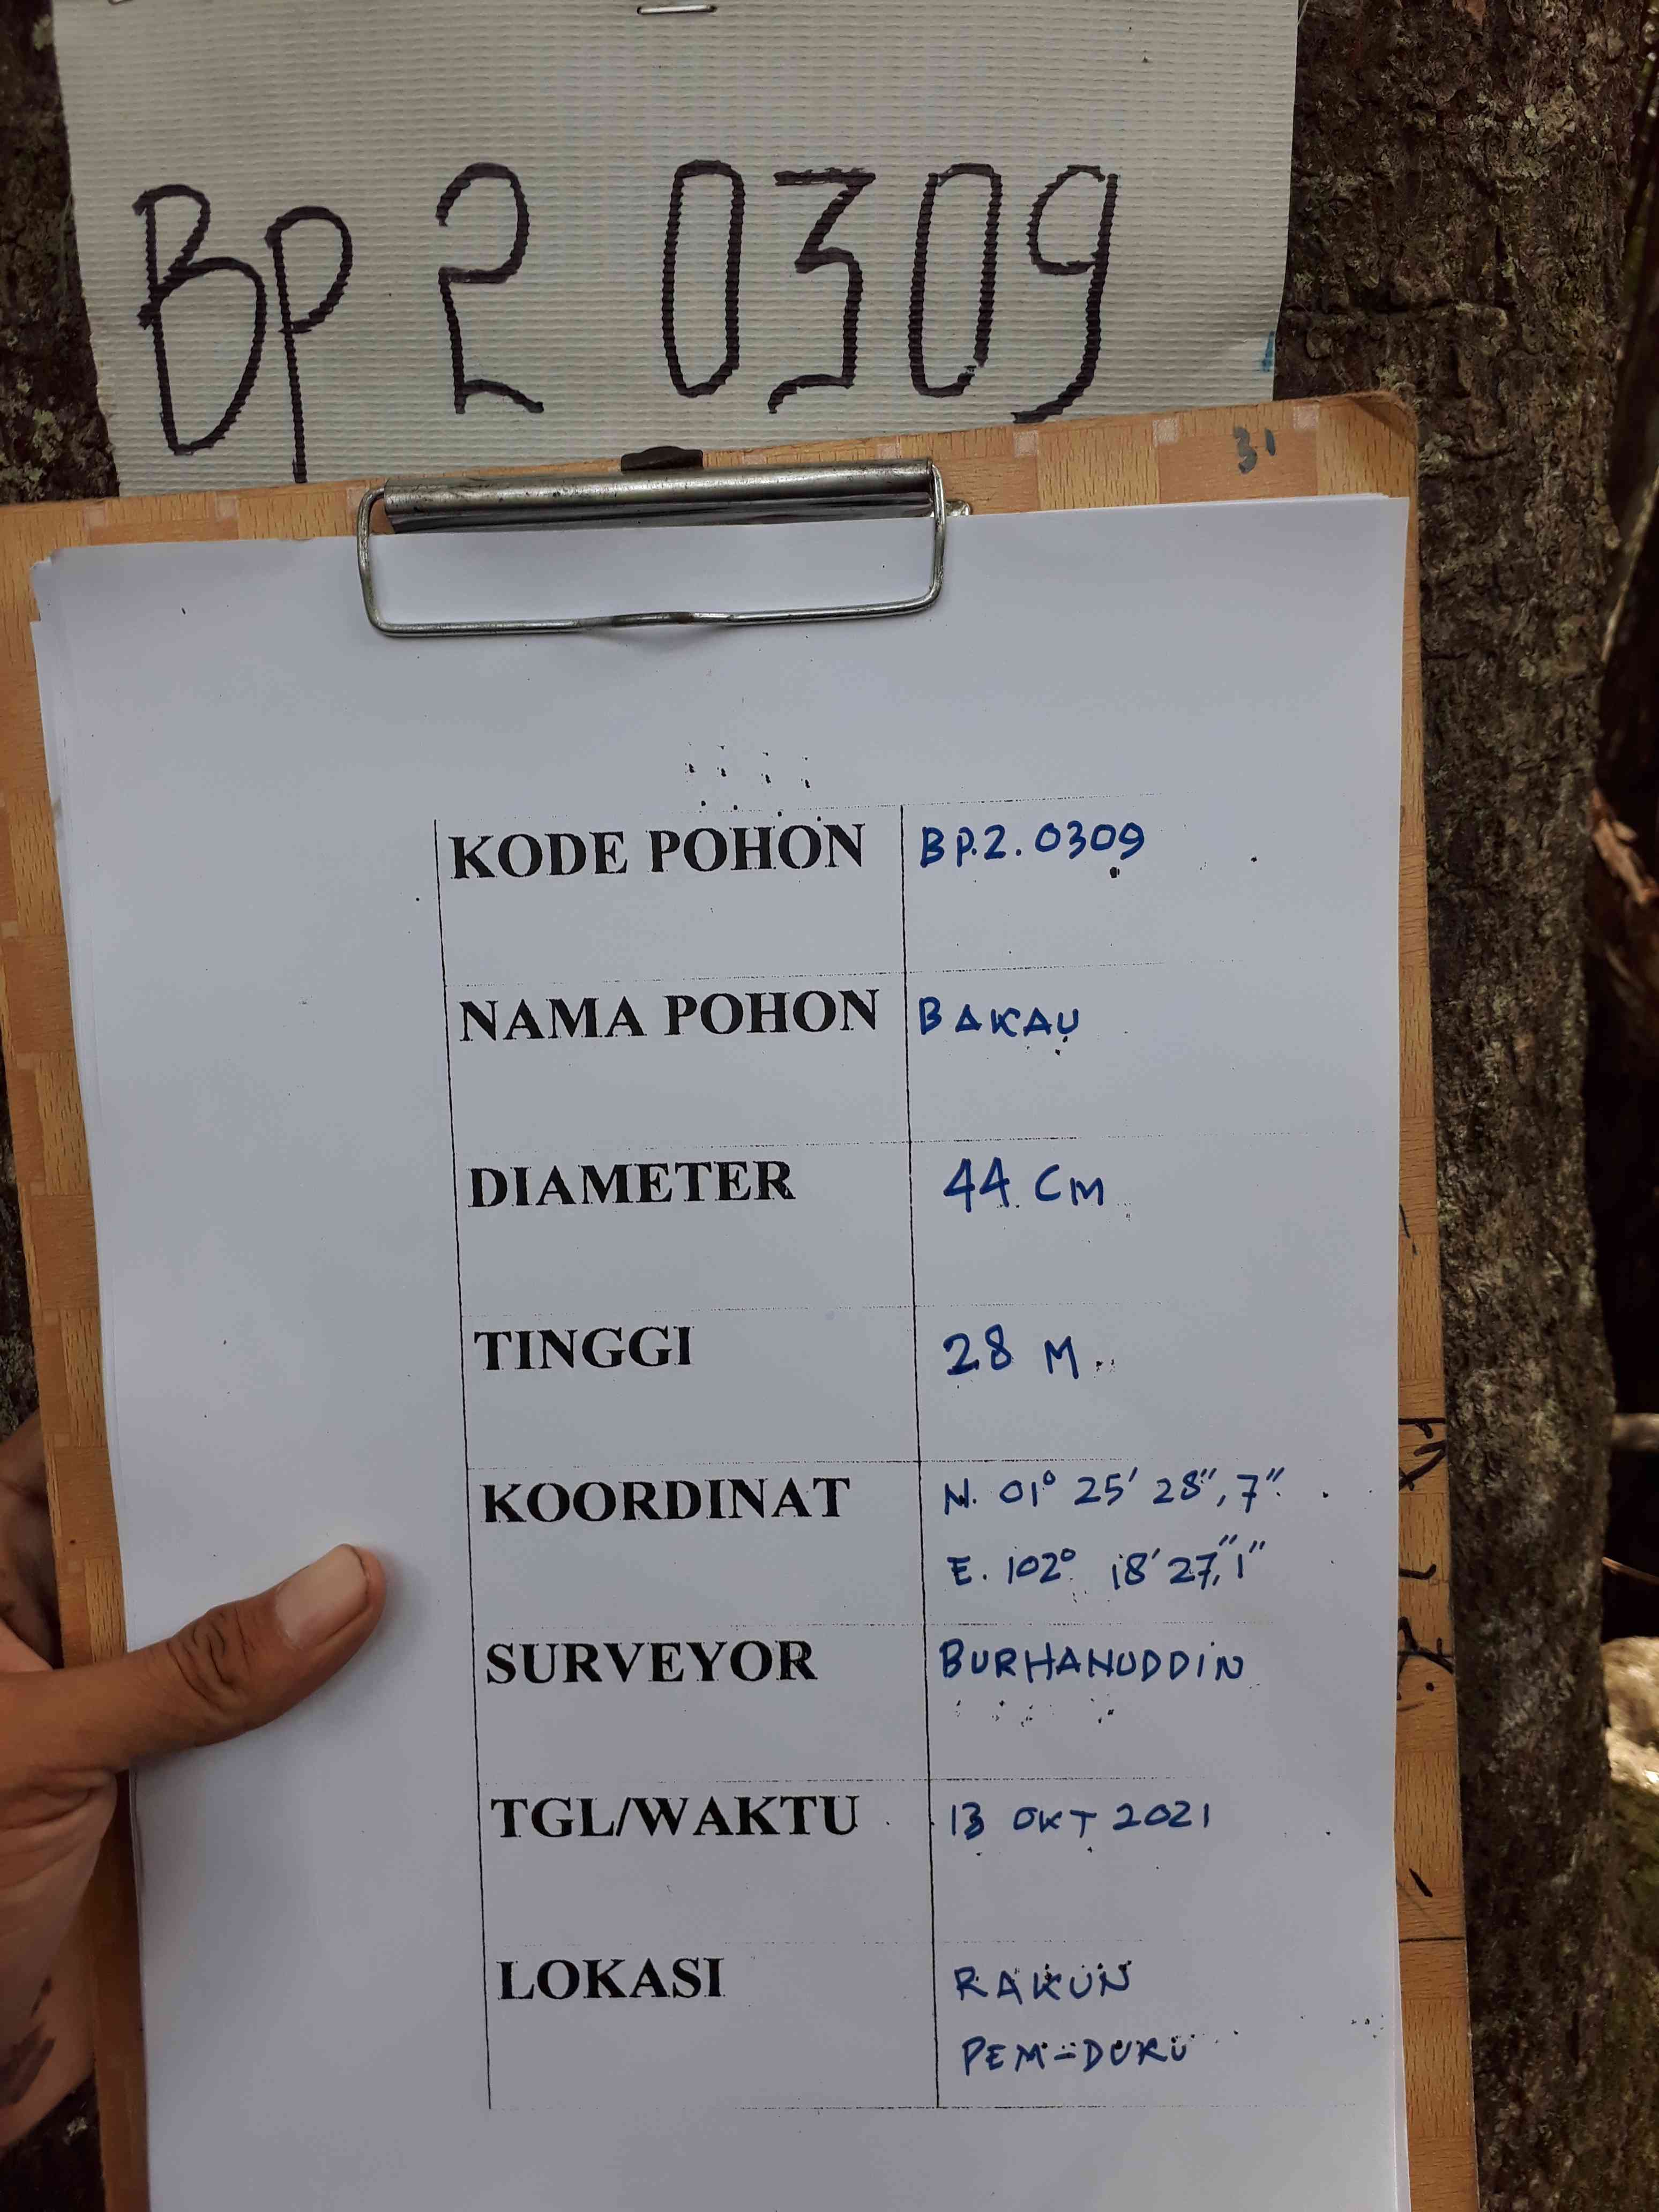 BP 2 0309
31
KODE POHON BP.2.0309
NAMA POHON BAKAU
DIAMETER 44 CM
TINGGI 28 M
KOORDINAT N. 01° 25' 28",7"
E. 102° 18' 27,"1"
SURVEYOR BURHANUDDIN
TGL/WAKTU 13 OKT 2021
LOKASI RAKUN
PEM-DURU